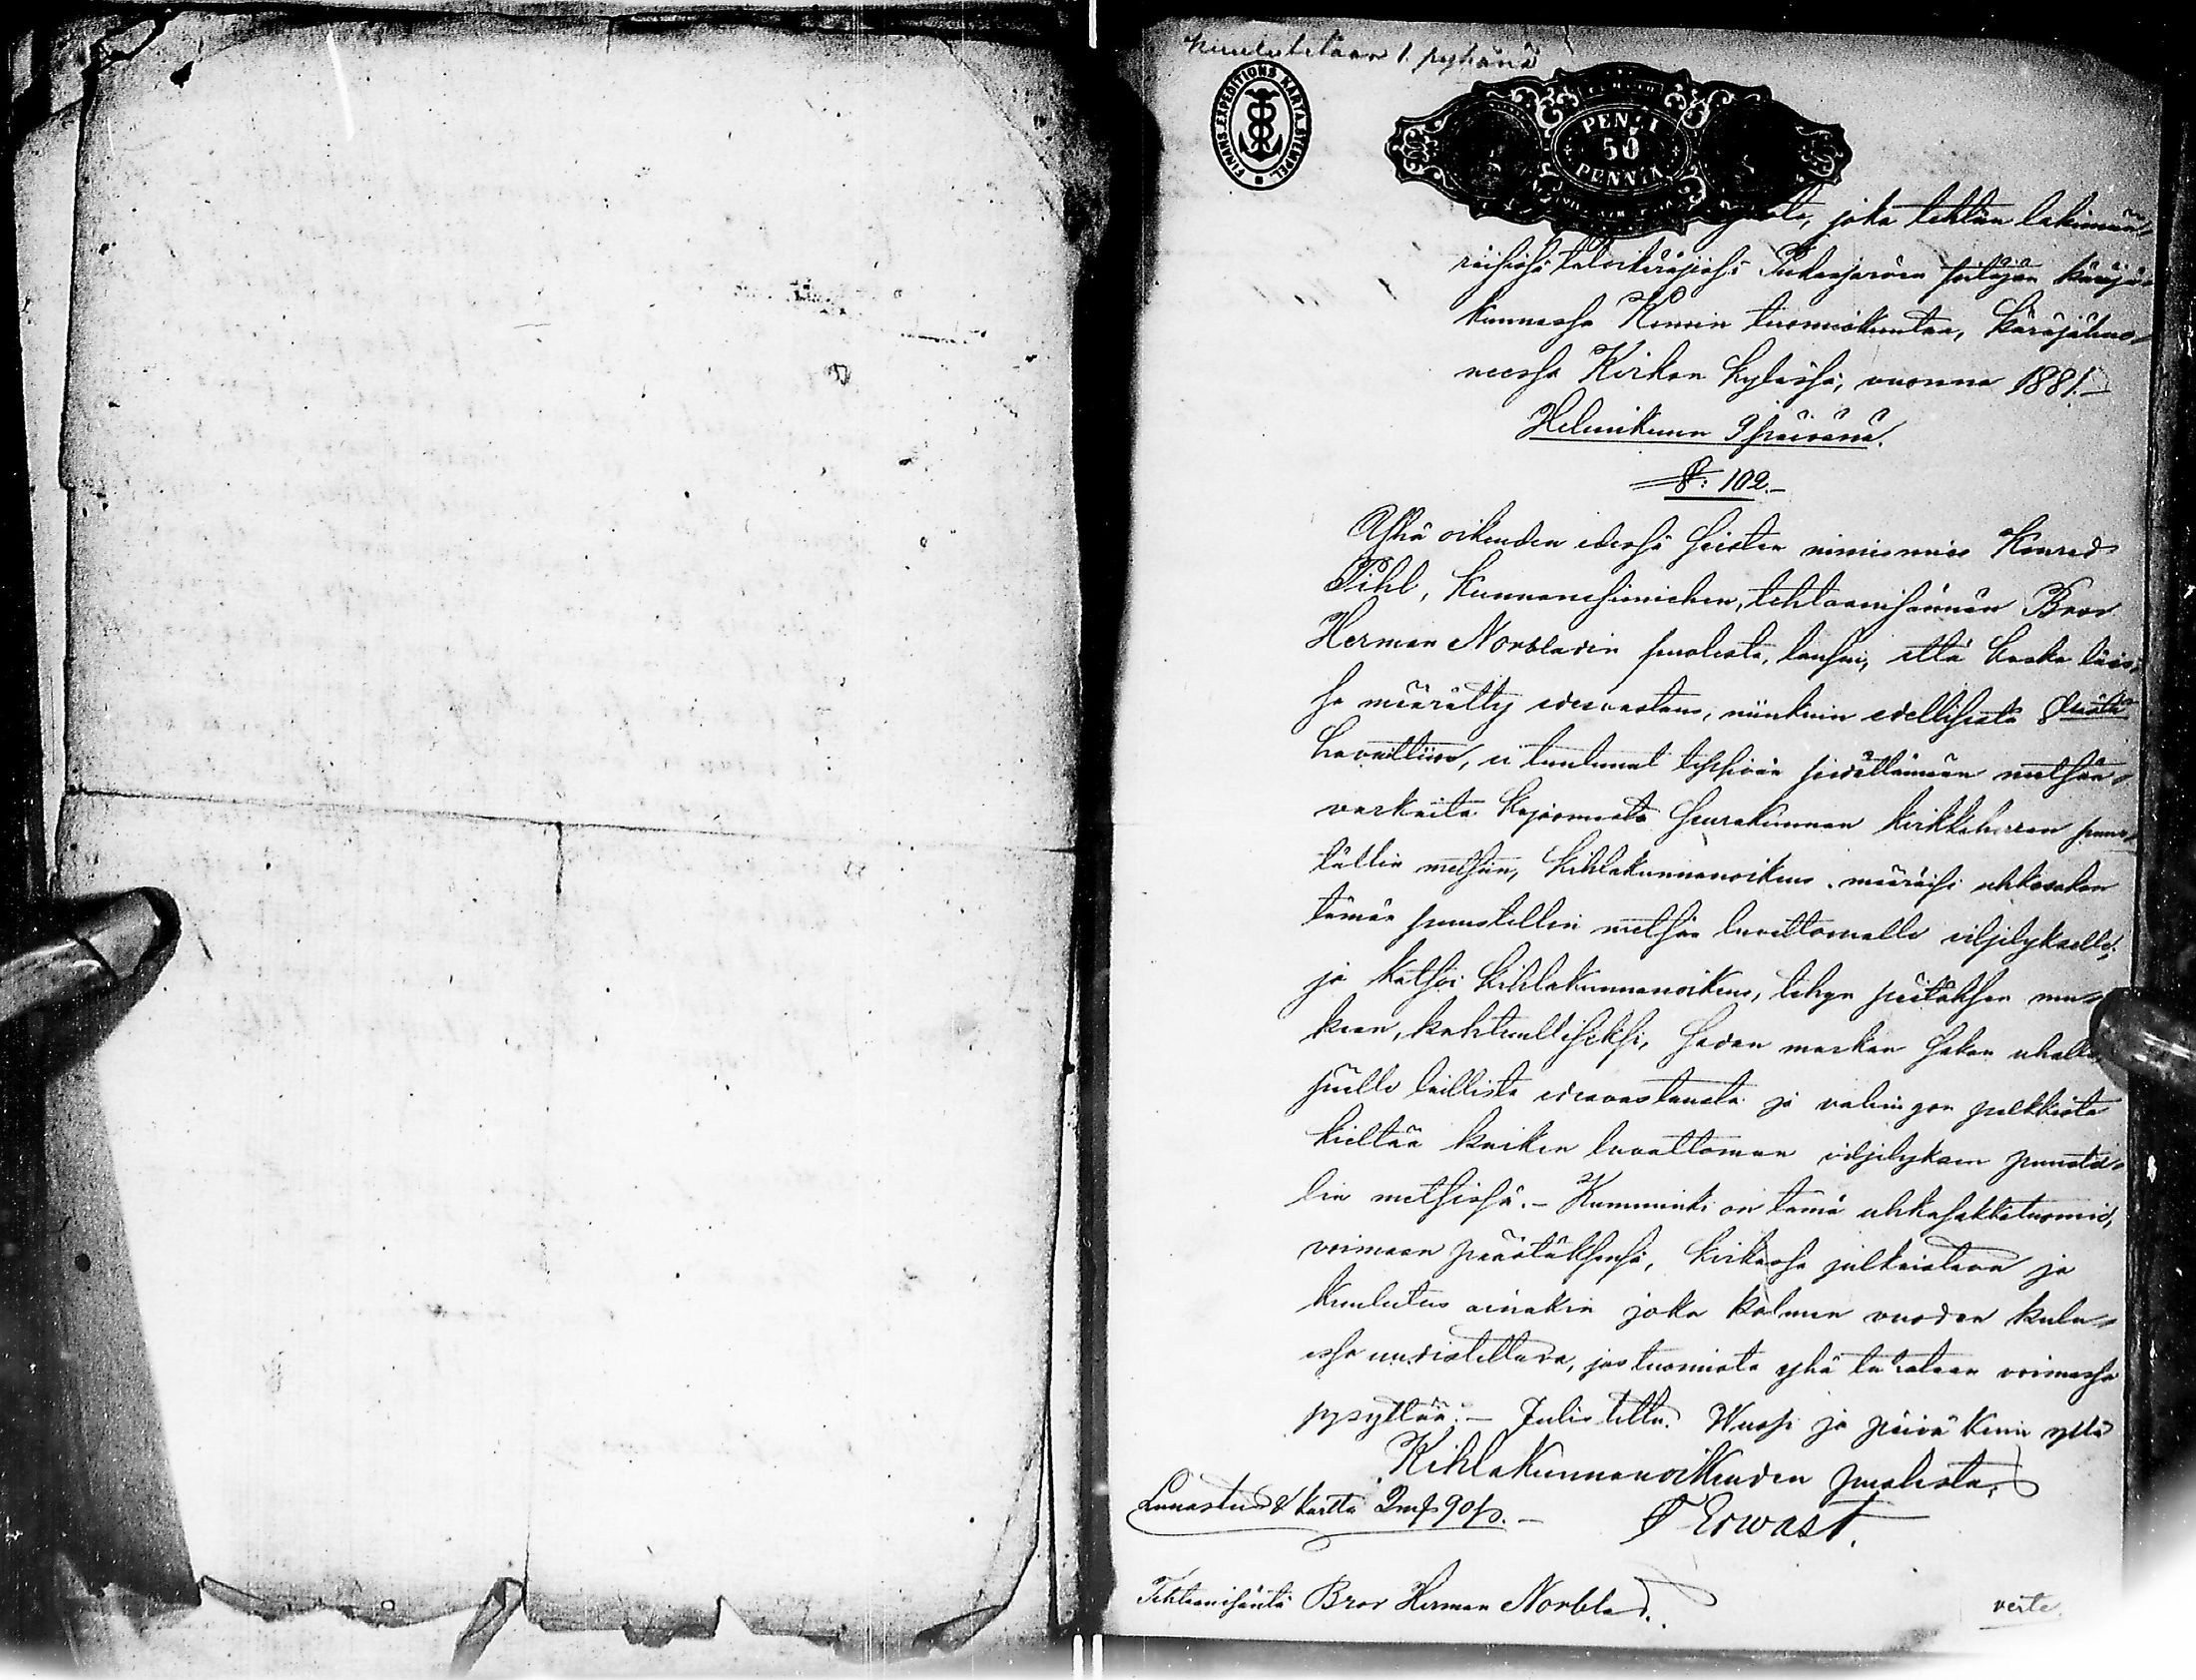 Kuulutetaan 1. pyhänä
FINANS EXPEDITIONS KARTA STEMPEL
PENNI
50
PENNIÄ
joka tehtiin lakimää-
räisissä talvikäräjissä Pudasjärven pitäjän käräjä-
kunnassa Kemin tuomiokuntaa, käräjähuo-
neessa Kirkon kylässä, vuonna 1881.-
Helmikuun 9 päivänä.
§: 102.-
Yhä oikeuden edessä seisten nimismies Konrad
Pihl, kunnanesimiehen, tehtaanisännän Bror
Herman Norbladin puolesta, lausui, että koska lais-
sa määrätty edesvastaus, niinkuin edellisestä §:stä
havaittiin, ei tuntunut tyystään pidättämään metsän-
varkaita seurakunnan kirkkoherran puus-
tällin metsän, kihlakunnanoikeus määräisi uhkasakon
tämän puustellin metsän luvattomalle viljelykselle;
ja katsoi kihlakunnanoikeus, tehyn päätöksen mu-
kaan, kohtuulliseksi, sadan markan sakon uhalla,
päälle laillista edesvastausta ja vahingon palkkiota
kieltää kaiken luvattoman viljelyksen puustel-
lin metsissä.- Kumminki on tämä uhkasakkotuomio,
voimaan päästäksensä, kirkossa julkaistava ja
kuulutus ainakin joka kolmen vuoden kulu-
essa uudistettava, jos tuomiota yhä tahdotaan voimassa
pysyttää.- Julistettu. Wuosi ja päivä kuin yllä
Kihlakunnanoikeuden puolesta,
Lunastus & kartta 2mf 90p.-
Erwast.
Tehtaanisäntä Bror Herman Norblad.
verte.